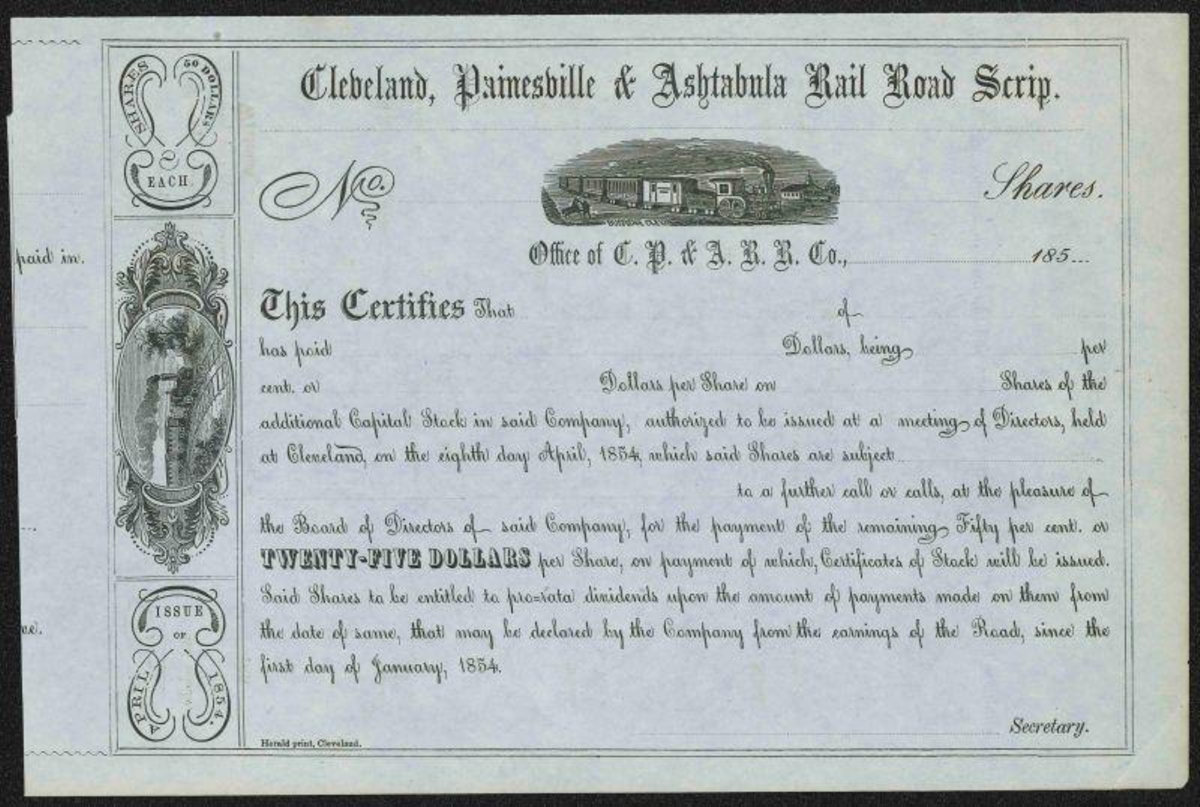 Cleveland, Painesville & Ashtabula Rail Road Scrip.
SHARES
50 DOLLARS
EACH
No.
Shares.
Office of C. P. & A. R. R. Co., 185
paid in.
This Certifies That of
has paid Dollars, being per
cent. or Dollars per Share on Shares of the
additional Capital Stock in said Company, authorized to be issued at a meeting of Directors, held
at Cleveland, on the eighth day April, 1854, which said Shares are subject
to a further call or calls, at the pleasure of
the Board of Directors of said Company, for the payment of the remaining Fifty per cent. or
TWENTY-FIVE DOLLARS per Share, on payment of which, Certificates of Stock will be issued.
Said Shares to be entitled to pro=rata dividends upon the amount of payments made on them from
the date of same, that may be declared by the Company from the earnings of the Road, since the
first day of January, 1854.
ISSUE
OF
APRIL 1854.
Secretary.
Herald print, Cleveland.